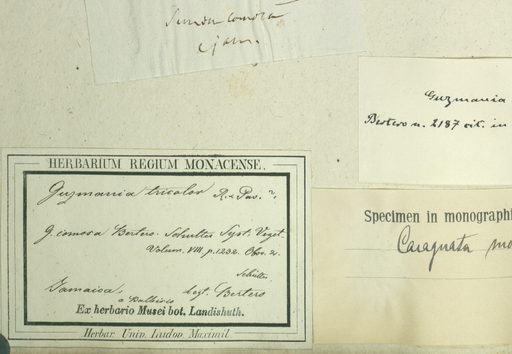 comosa
ejam.
Guzmania
Bertero n. 2187 cit. in
HERBARIUM REGIUM MONACENSE.
Guzmania tricolor R. & Pav. ?,
G. comosa Bertero. Schultes Syst. Veget.
Volum. VII. p. 1232. Obs. 2.
Schultes
Jamaica. legt. Bertero
a Balbisio
Ex herbario Musei bot. Landishuth.
Herbar. Univ. Ludov. Maximil.
Specimen in monographi
Caraguata mo